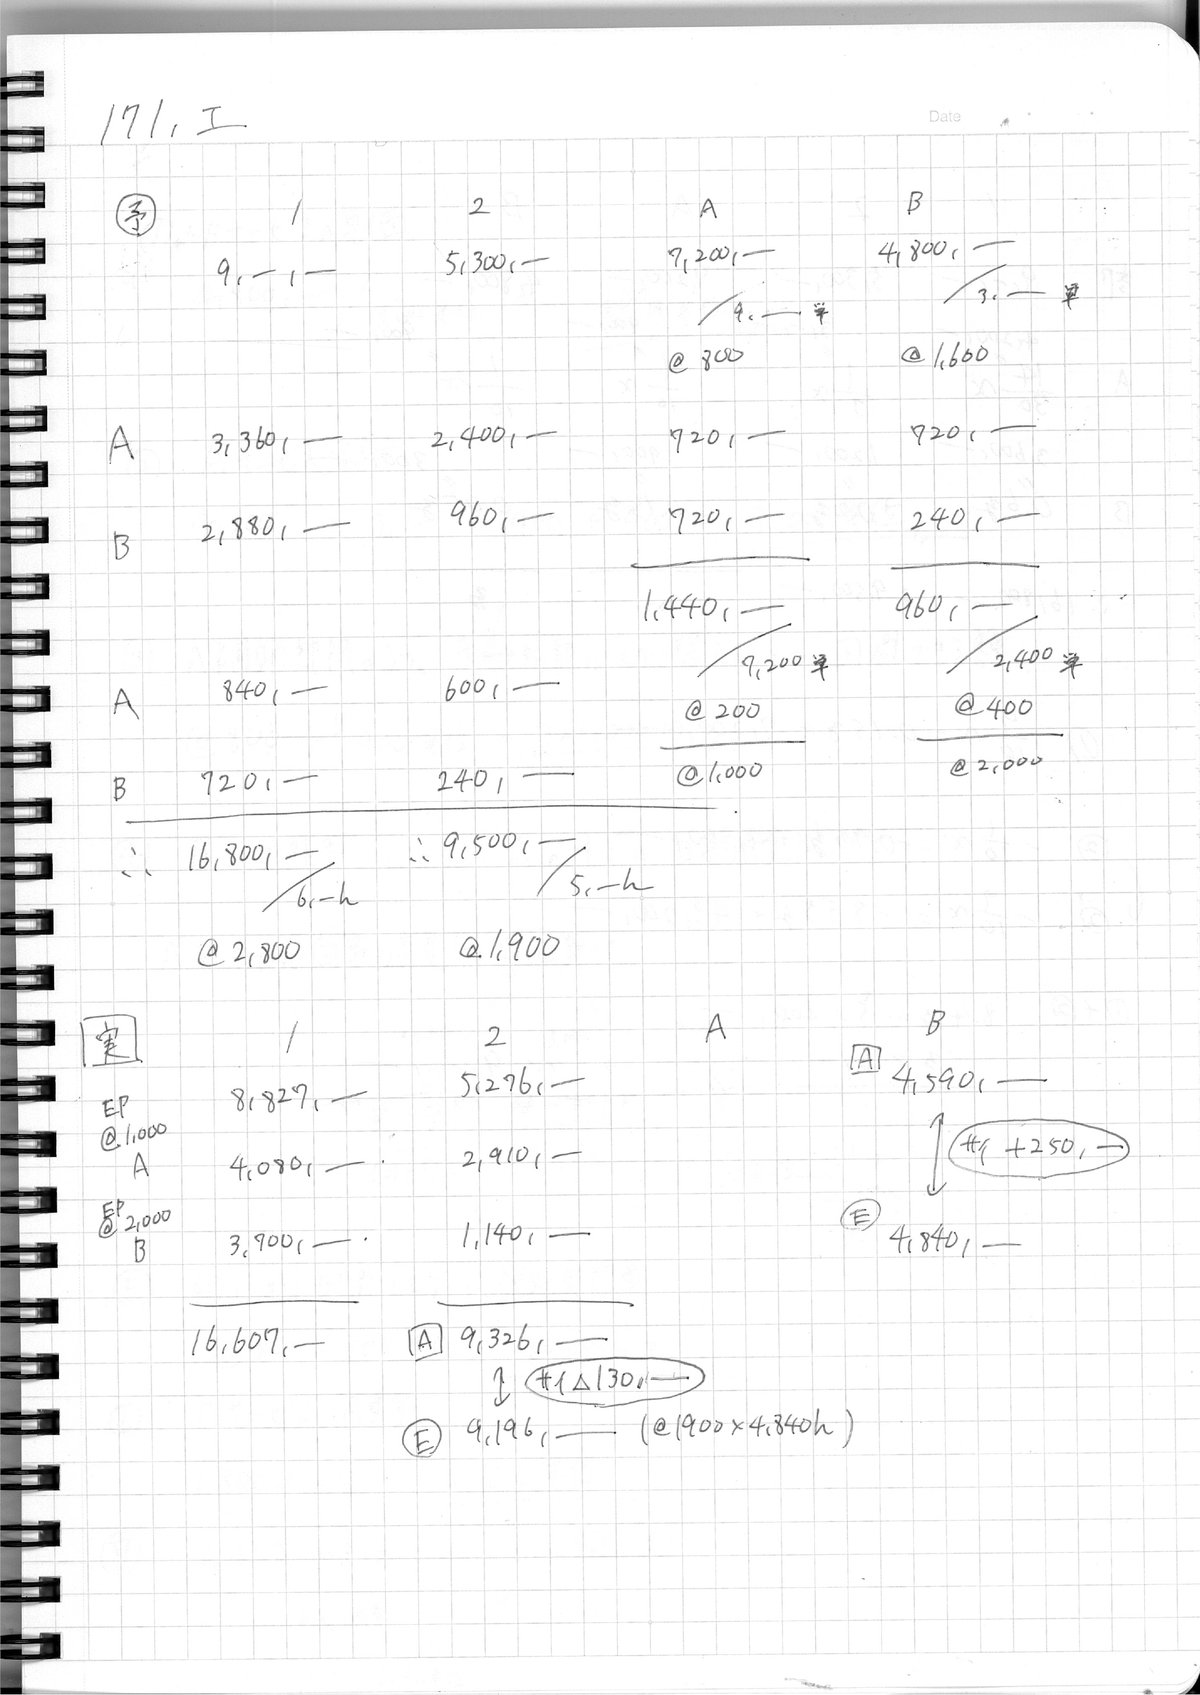 171, エ
Date
予 1 2 A B
9,―,― 5,300,― 7,200,― 4,800,―
/9,― 単 /3,― 単
@800 @1,600
A 3,360,― 2,400,― 720,― 720,―
B 2,880,― 960,― 720,― 240,―
1,440,― 960,―
/7,200単 /2,400単
A 840,― 600,― @200 @400
B 720,― 240,― @1,000 @2,000
∴ 16,800,― ∴ 9,500,―
/6,―h /5,―h
@2,800 @1,900
実 1 2 A B
EP @1,000 8,827,― 5,276,― A 4,590,―
A 4,080,― 2,910,― +250,―
EP @2,000 E 4,840,―
B 3,700,― 1,140,―
16,607,― A 9,326,―
△130,―
E 9,196,― (@1900×4,840h)